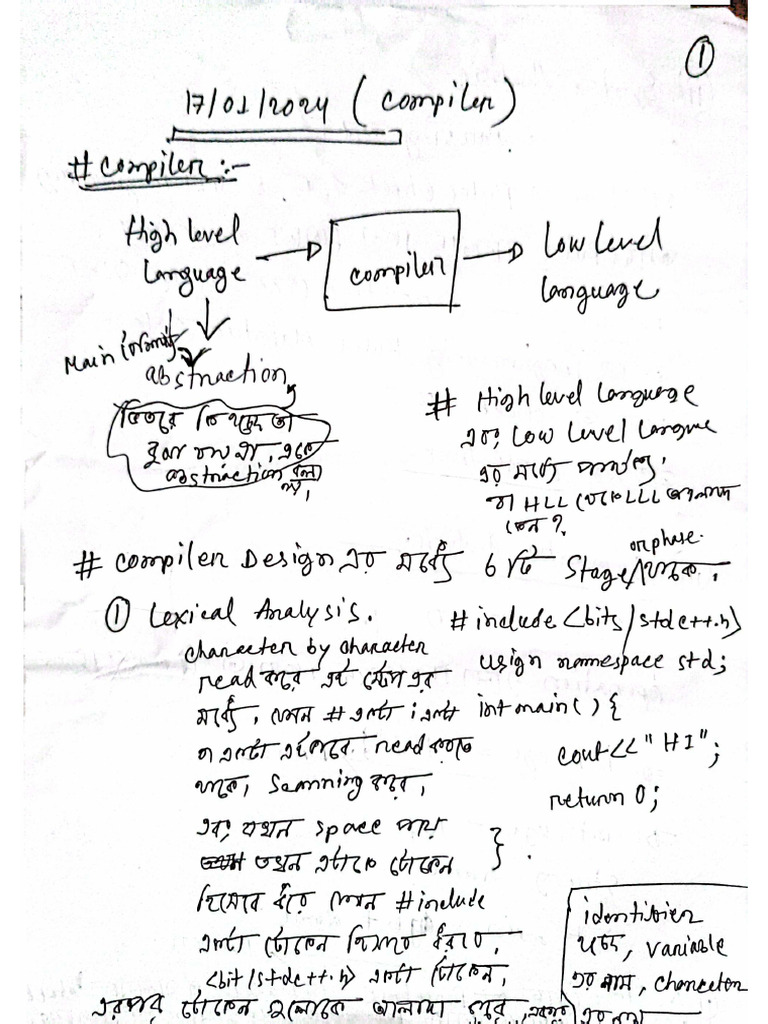 ①
17/01/2024 (Compiler)
# Compiler :-
High level
Language
compiler
Low level
Language
Main
abstraction
ভিতরে কি হচ্ছে তা
abstraction বলা
হয়।
# High level Language
এবং Low Level Langue
এর মধ্যে পার্থক্য।
বা HLL থেকে LLL আলাদা
কেন?
# Compiler Design এর মধ্যে ৬ টি Stage/ or phase থাকে।
① Lexical Analysis.
character by character
read করে এই স্টেপ এর
মধ্যে, যেমন # একটা i একটা
n একটা এইভাবে read করতে
থাকে, Scanning করে,
এবং যখন space পায়
তখন এটাকে টোকেন
হিসেবে ধরে যেমন #include
একটা টোকেন হিসাবে ধরবে,
<bit/stdc++.h> একটা টোকেন,
এরপর টোকেন গুলোকে আলাদা করে,
#include <bits/stdc++.h>
usign namespace std;
int main() {
cout<<"HI";
return 0;
}
identifier
হচ্ছে, variable
এর নাম, character
এর নাম